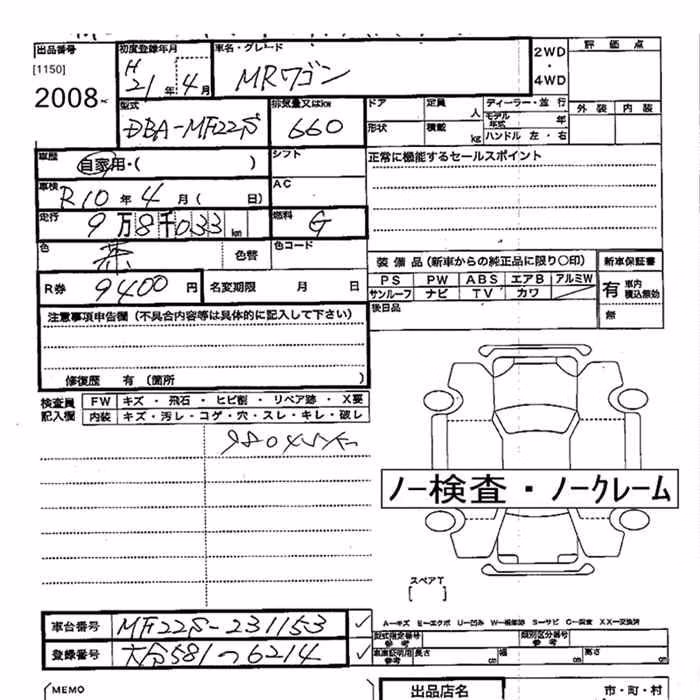 出品番号 初度登録年月 車名・グレード 2WD・4WD 評価点
[1150] H 21年 4月 MRワゴン
2008 外装 内装
型式 排気量又はkw ドア 定員 人 ディーラー・並行
DBA-MF22S 660 形状 積載 kg モデル年式 年
ハンドル 左・右
車歴 自家用・( ) シフト 正常に機能するセールスポイント
車検 R10年 4月 ( 日) AC
走行 9万8千033km 燃料 G
色 色替 色コード
装備品(新車からの純正品に限り○印) 新車保証書
PS PW ABS エアB アルミW 有 車内積込無効
R券 9400円 名変期限 月 日 サンルーフ ナビ TV カワ
後日品 無
注意事項申告欄(不具合内容等は具体的に記入して下さい)
修復歴 有(箇所 )
検査員記入欄 FW キズ・飛石・ヒビ割・リペア跡・X要
内装 キズ・汚レ・コゲ・穴・スレ・キレ・破レ
ノー検査・ノークレーム
スペアT
[ ]
A－キズ E－エクボ U－凹み W－補修跡 S－サビ C－腐食 XX－交換済
車台番号 MF22S-231153 型式指定番号 参考 類別区分番号 参考
登録番号 大分581つ6214 車庫証明用 参考 長さ cm 幅 cm 高さ cm
MEMO 出品店名 市・町・村